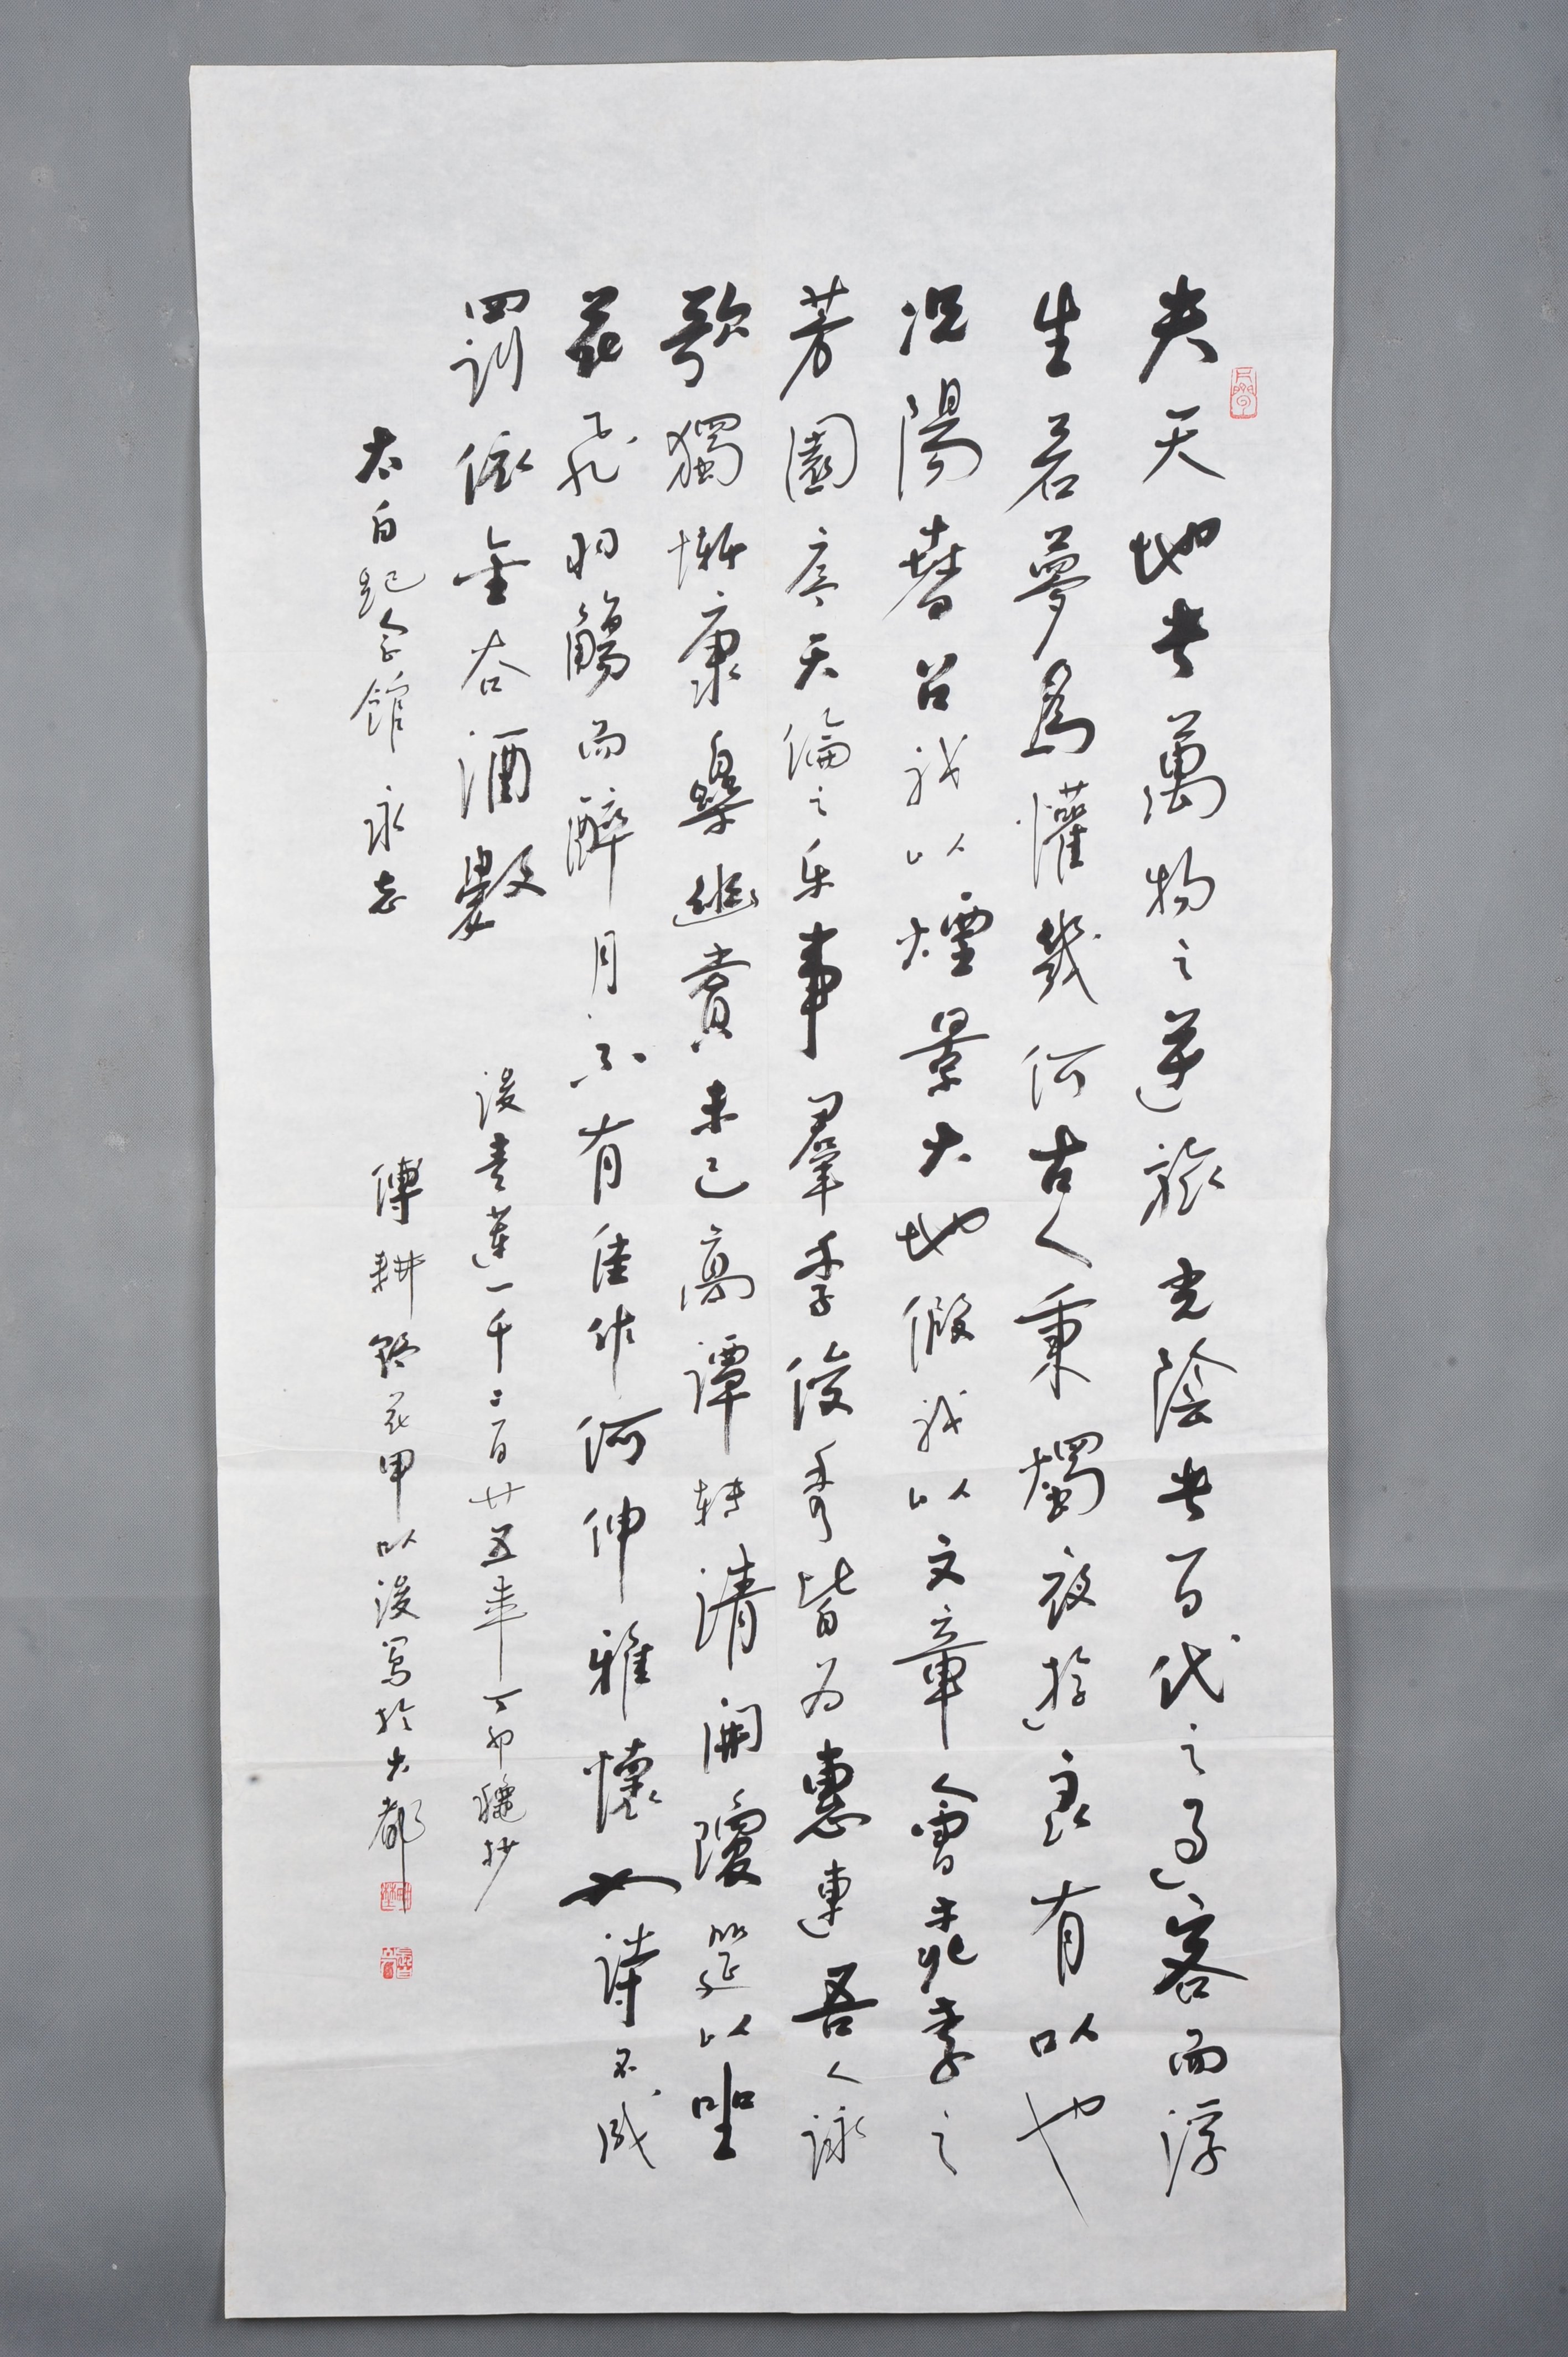 夫天地者萬物之逆旅光陰者百代之過客而浮
生若夢爲懽幾何古人秉燭夜遊良有以也
况陽春召我以煙景大地假我以文章會桃李之
芳園序天倫之乐事羣季俊秀皆为惠連吾人詠
歌獨慚康樂幽賞未已高譚轉清開瓊筵以坐
花飛羽觴而醉月不有佳作何伸雅懷如詩不成
罰依金谷酒數
後青蓮一千二百廿五年丁卯穐抄
太白紀念館永志
傅耕野花甲以後写於大都